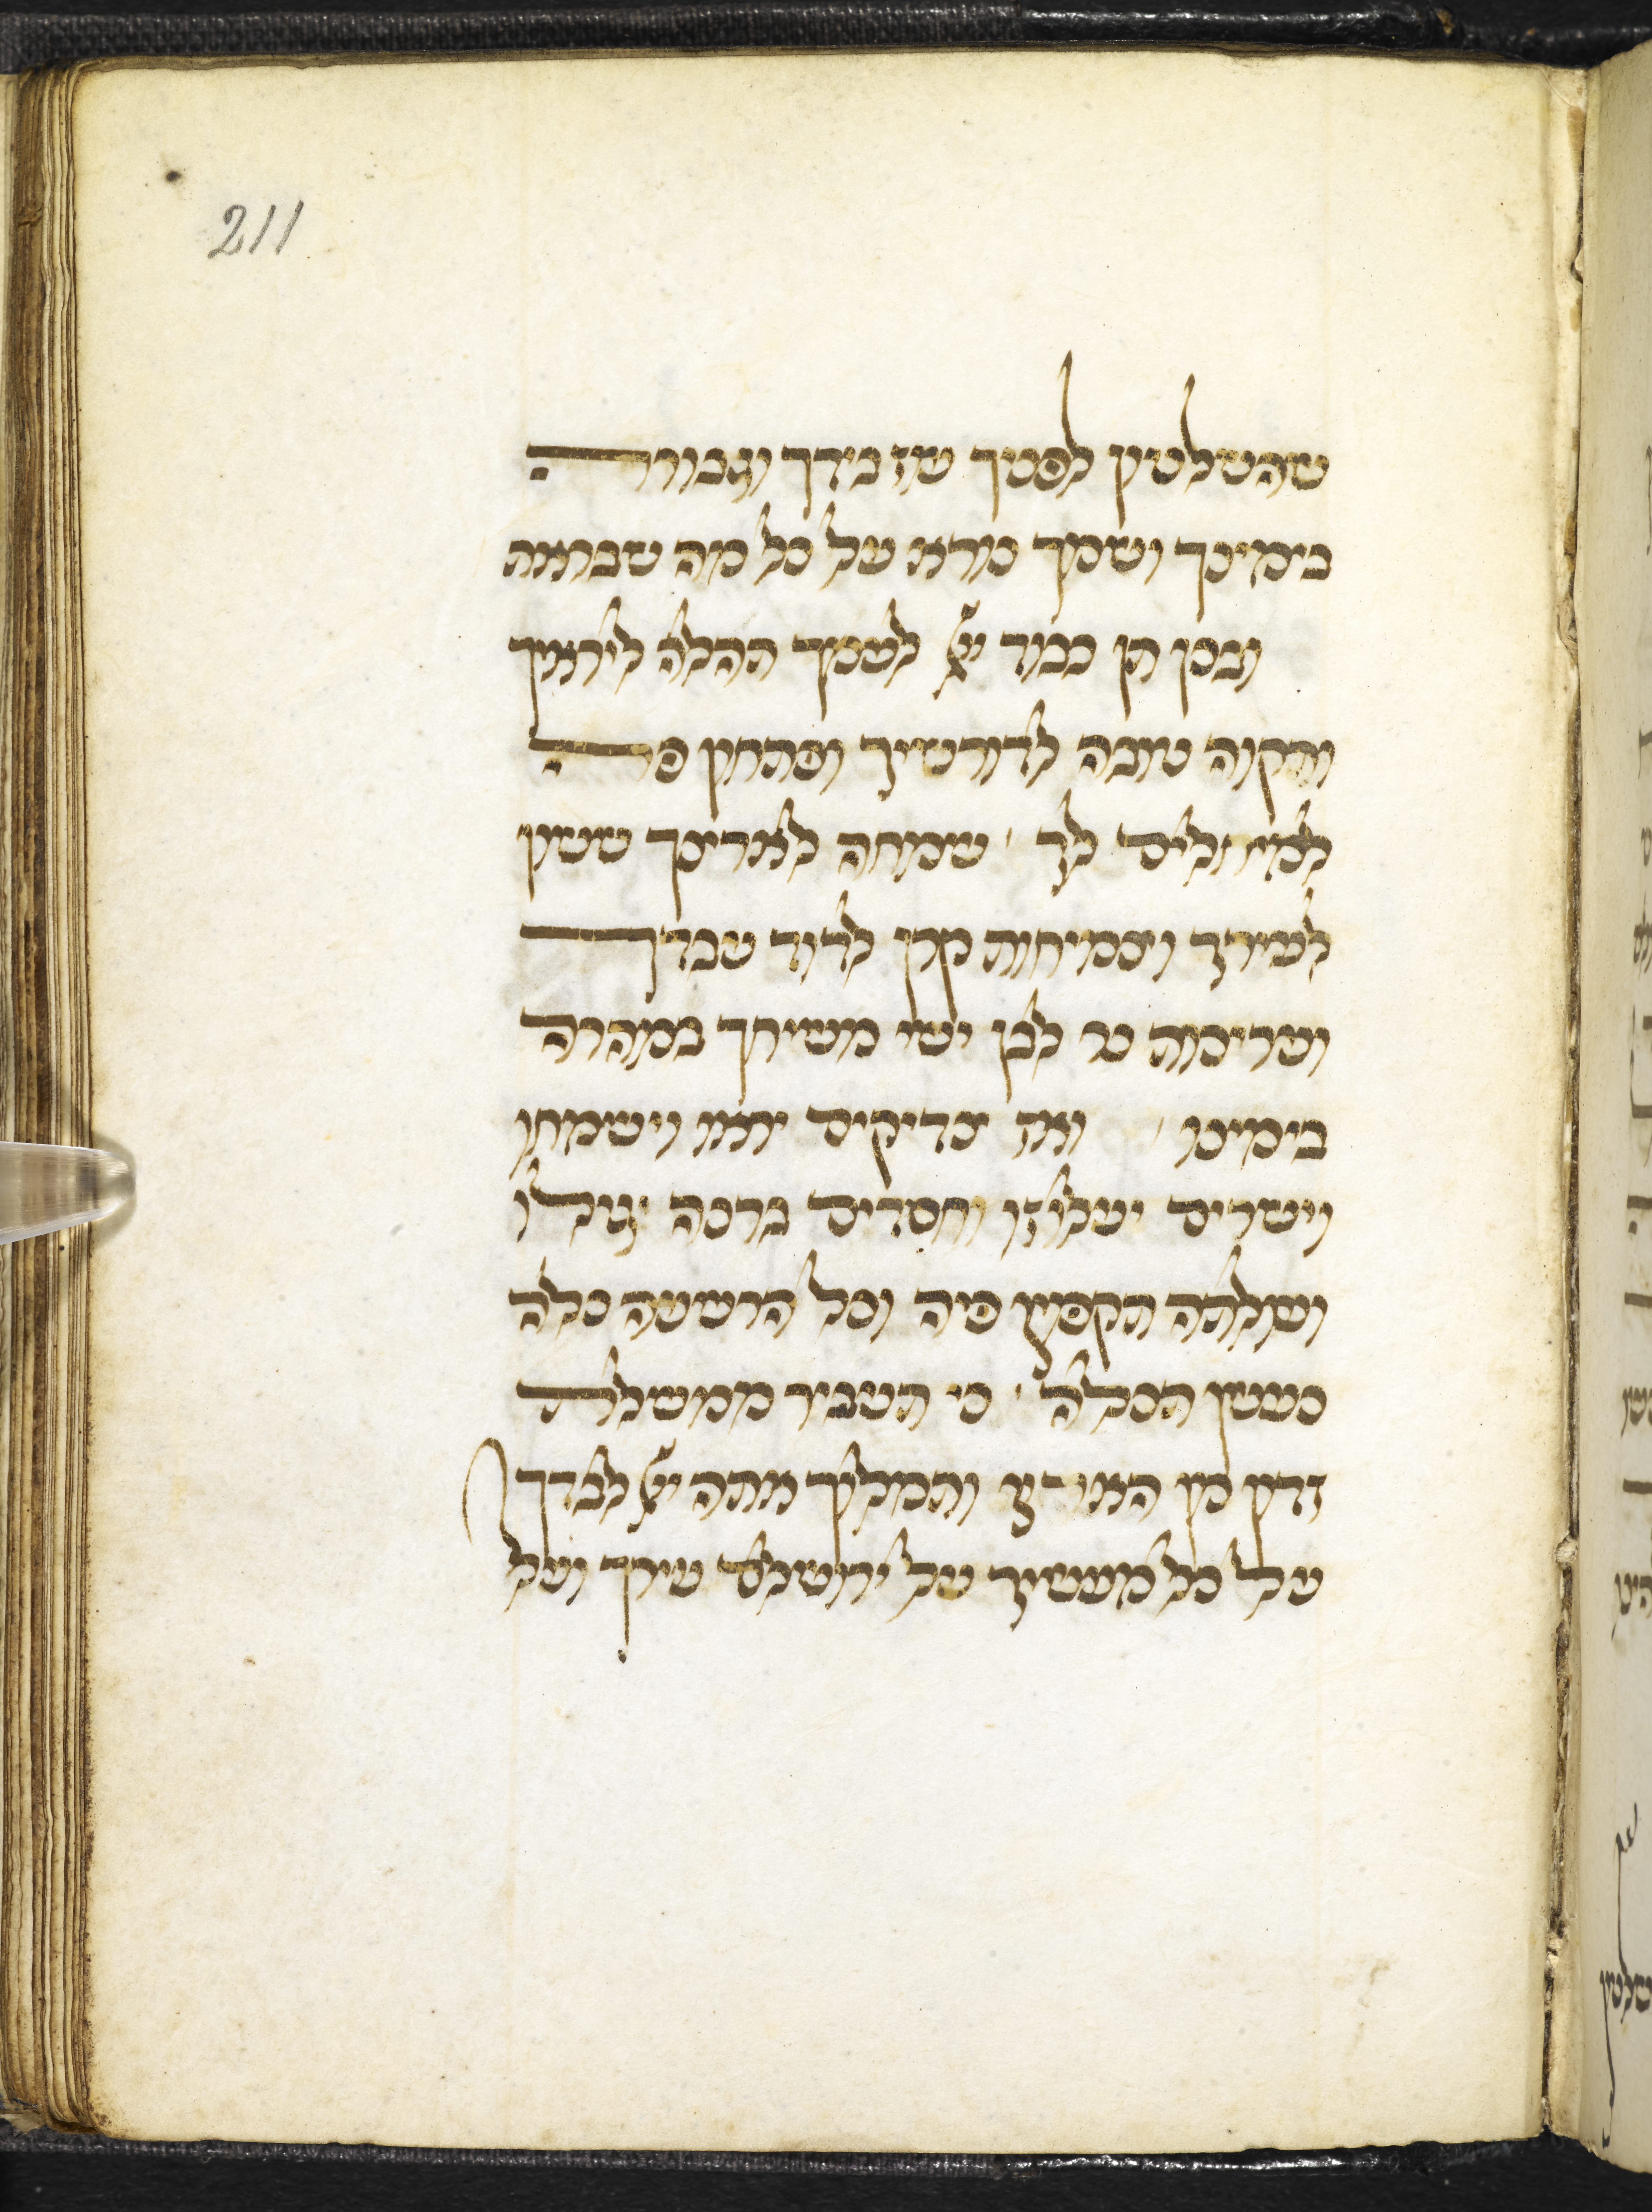 211
שהשלטון לפניך עוז בידך וגבורה
בימינך ושמך נורא על כל מה שבראת
ובכן תן כבוד יי׳ לעמך תהלה ליראיך
ותקוה טובה לדורשיך ופתחון פה
למיחלים לך שמחה לארצך ששון
לעירך וצמיחת קרן לדוד עבדך
ועריכת נר לבן ישי משיחך במהרה
בימינו ואז צדיקים יראו וישמחו
וישרים יעלוזו וחסידים ברנה יגילו
ועולתה תקפוץ פיה וכל הרשעה כלה
כעשן תכלה כי תעביר ממשלת
זדון מן הארץ ותמלוך אתה יי׳ לבדך
על כל מעשיך על ירושלם עירך ועל